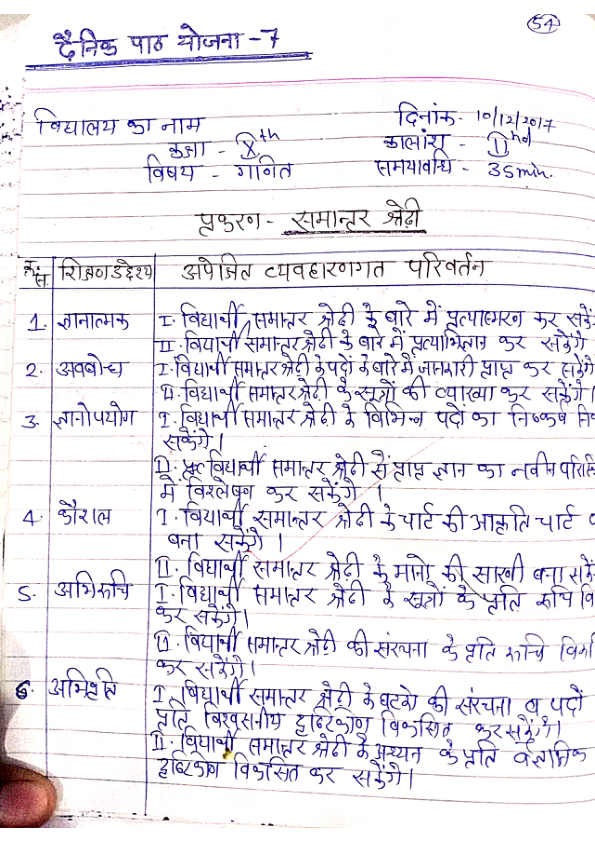 54
दैनिक पाठ योजना - 7
विद्यालय का नाम
दिनांक - 10/12/2017
कक्षा - Xth
कालांश - IInd
विषय - गणित
समयावधि - 35 min.
प्रकरण - समान्तर श्रेढ़ी
क्र. सं. शिक्षण उद्देश्य अपेक्षित व्यवहारगत परिवर्तन
1. ज्ञानात्मक I. विद्यार्थी समान्तर श्रेढ़ी के बारे में प्रत्यास्मरण कर सकेंगे
II. विद्यार्थी समान्तर श्रेढ़ी के बारे में प्रत्याभिज्ञान कर सकेंगे
2. अवबोध I. विद्यार्थी समान्तर श्रेढ़ी के पदों के बारे में जानकारी प्राप्त कर सकेंगे
II. विद्यार्थी समान्तर श्रेढ़ी के सूत्रों की व्याख्या कर सकेंगे।
3. ज्ञानोपयोग I. विद्यार्थी समान्तर श्रेढ़ी के विभिन्न पदों का निष्कर्ष
सकेंगे।
II. विद्यार्थी समान्तर श्रेढ़ी से प्राप्त ज्ञान का नवीन
में विश्लेषण कर सकेंगे।
4. कौशल I. विद्यार्थी समान्तर श्रेढ़ी के चार्ट की आकृति चार्ट
बना सकेंगे।
II. विद्यार्थी समान्तर श्रेढ़ी के मानो की सारणी बना सकें
5. अभिरूचि I. विद्यार्थी समान्तर श्रेढ़ी के सूत्रों के प्रति रूचि
कर सकेंगे।
II. विद्यार्थी समान्तर श्रेढ़ी की संरचना के प्रति रूचि
कर सकेंगे।
6. अभिवृत्ति I. विद्यार्थी समान्तर श्रेढ़ी के घटको की संरचना व पदों
प्रति विश्वसनीय दृष्टिकोण विकसित कर सकेंगे।
II. विद्यार्थी समान्तर श्रेढ़ी के अध्ययन के प्रति वैज्ञानिक
दृष्टिकोण विकसित कर सकेंगे।